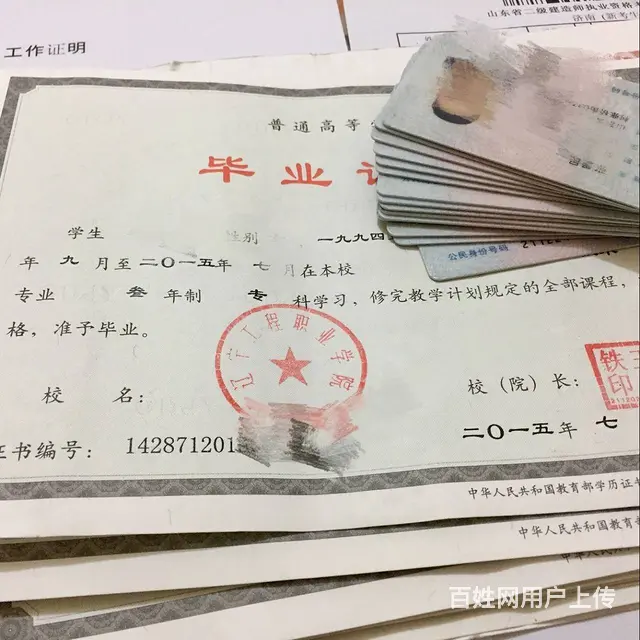 山东省二级建造师执业资格
济南（新考生
工作证明
普通高等
毕业
学生 性别 一九九四
年九月至二〇一五年七月在本校
专业 叁年制 专科学习，修完教学计划规定的全部课程，
格，准予毕业。
辽宁工程职业学院
校 名：
校（院）长：
铁
印
二〇一五年 七
证书编号： 142871201
中华人民共和国教育部学历证书
中华人民共和国教育部
中华人民共和
公民身份号码 2112
百姓网用户上传